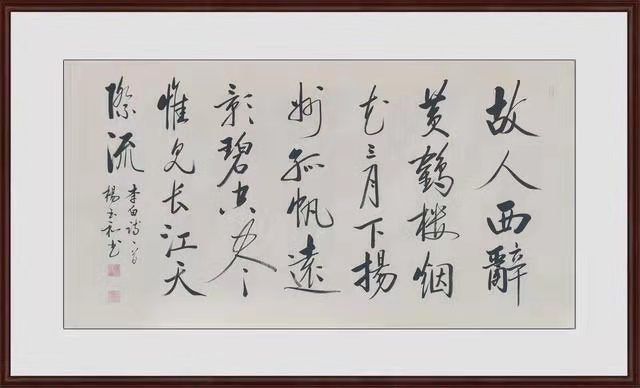 故人西辭
黄鶴楼烟
花三月下揚
州孤帆遠
影碧空尽
惟见长江天
際流
李白诗一首
楊玉和书